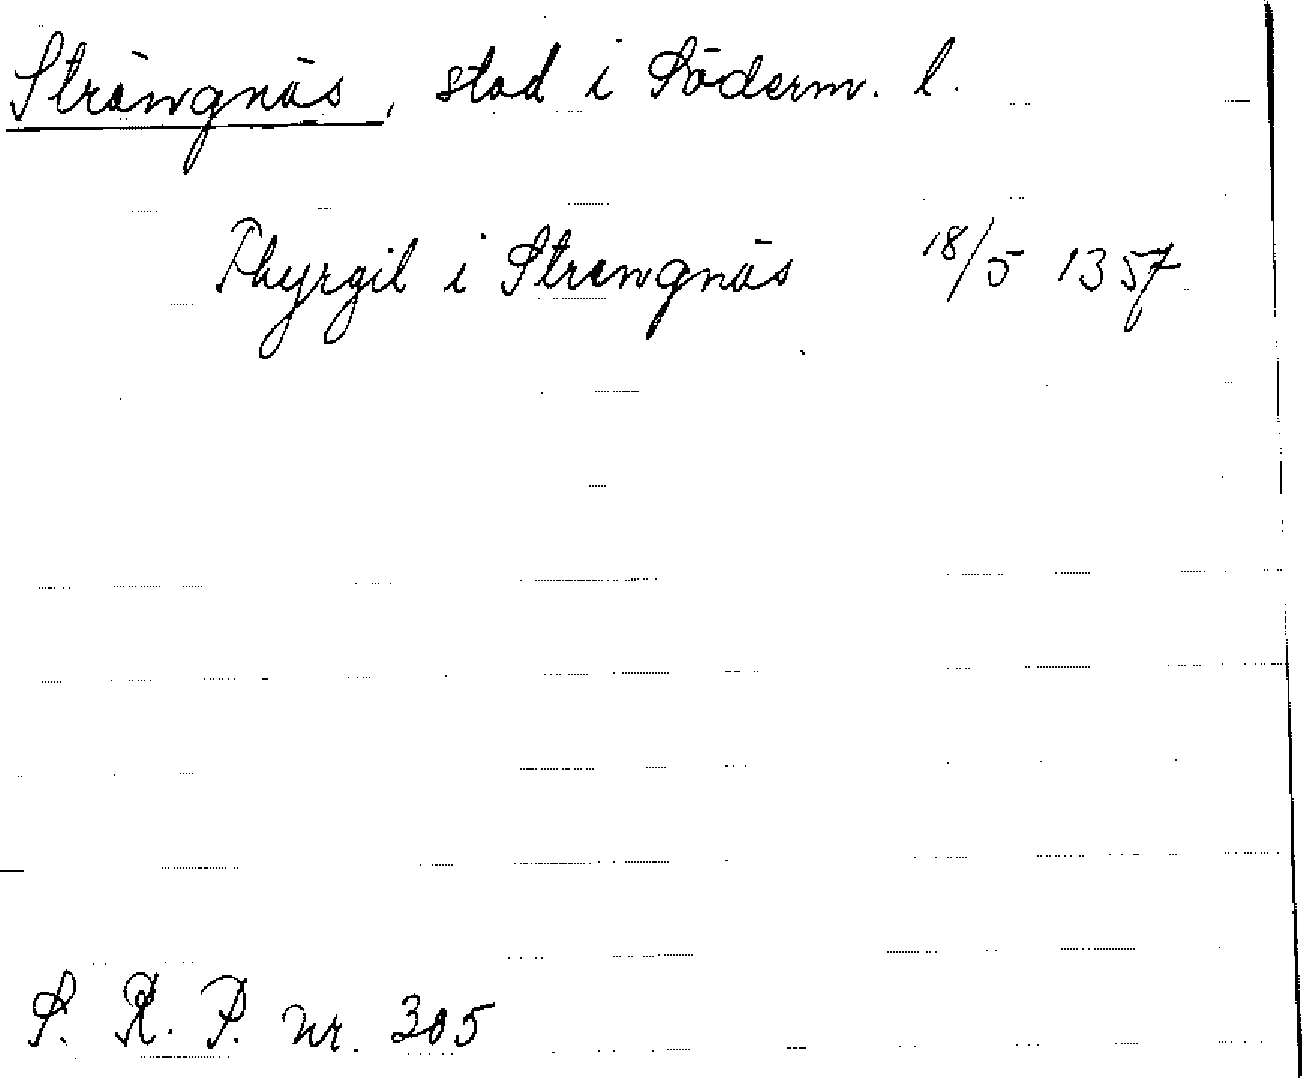 Strängnäs, stad i Söderm. l.
Thyrgil i Strengnäs 18/5 1357
S. R. P. nr. 305